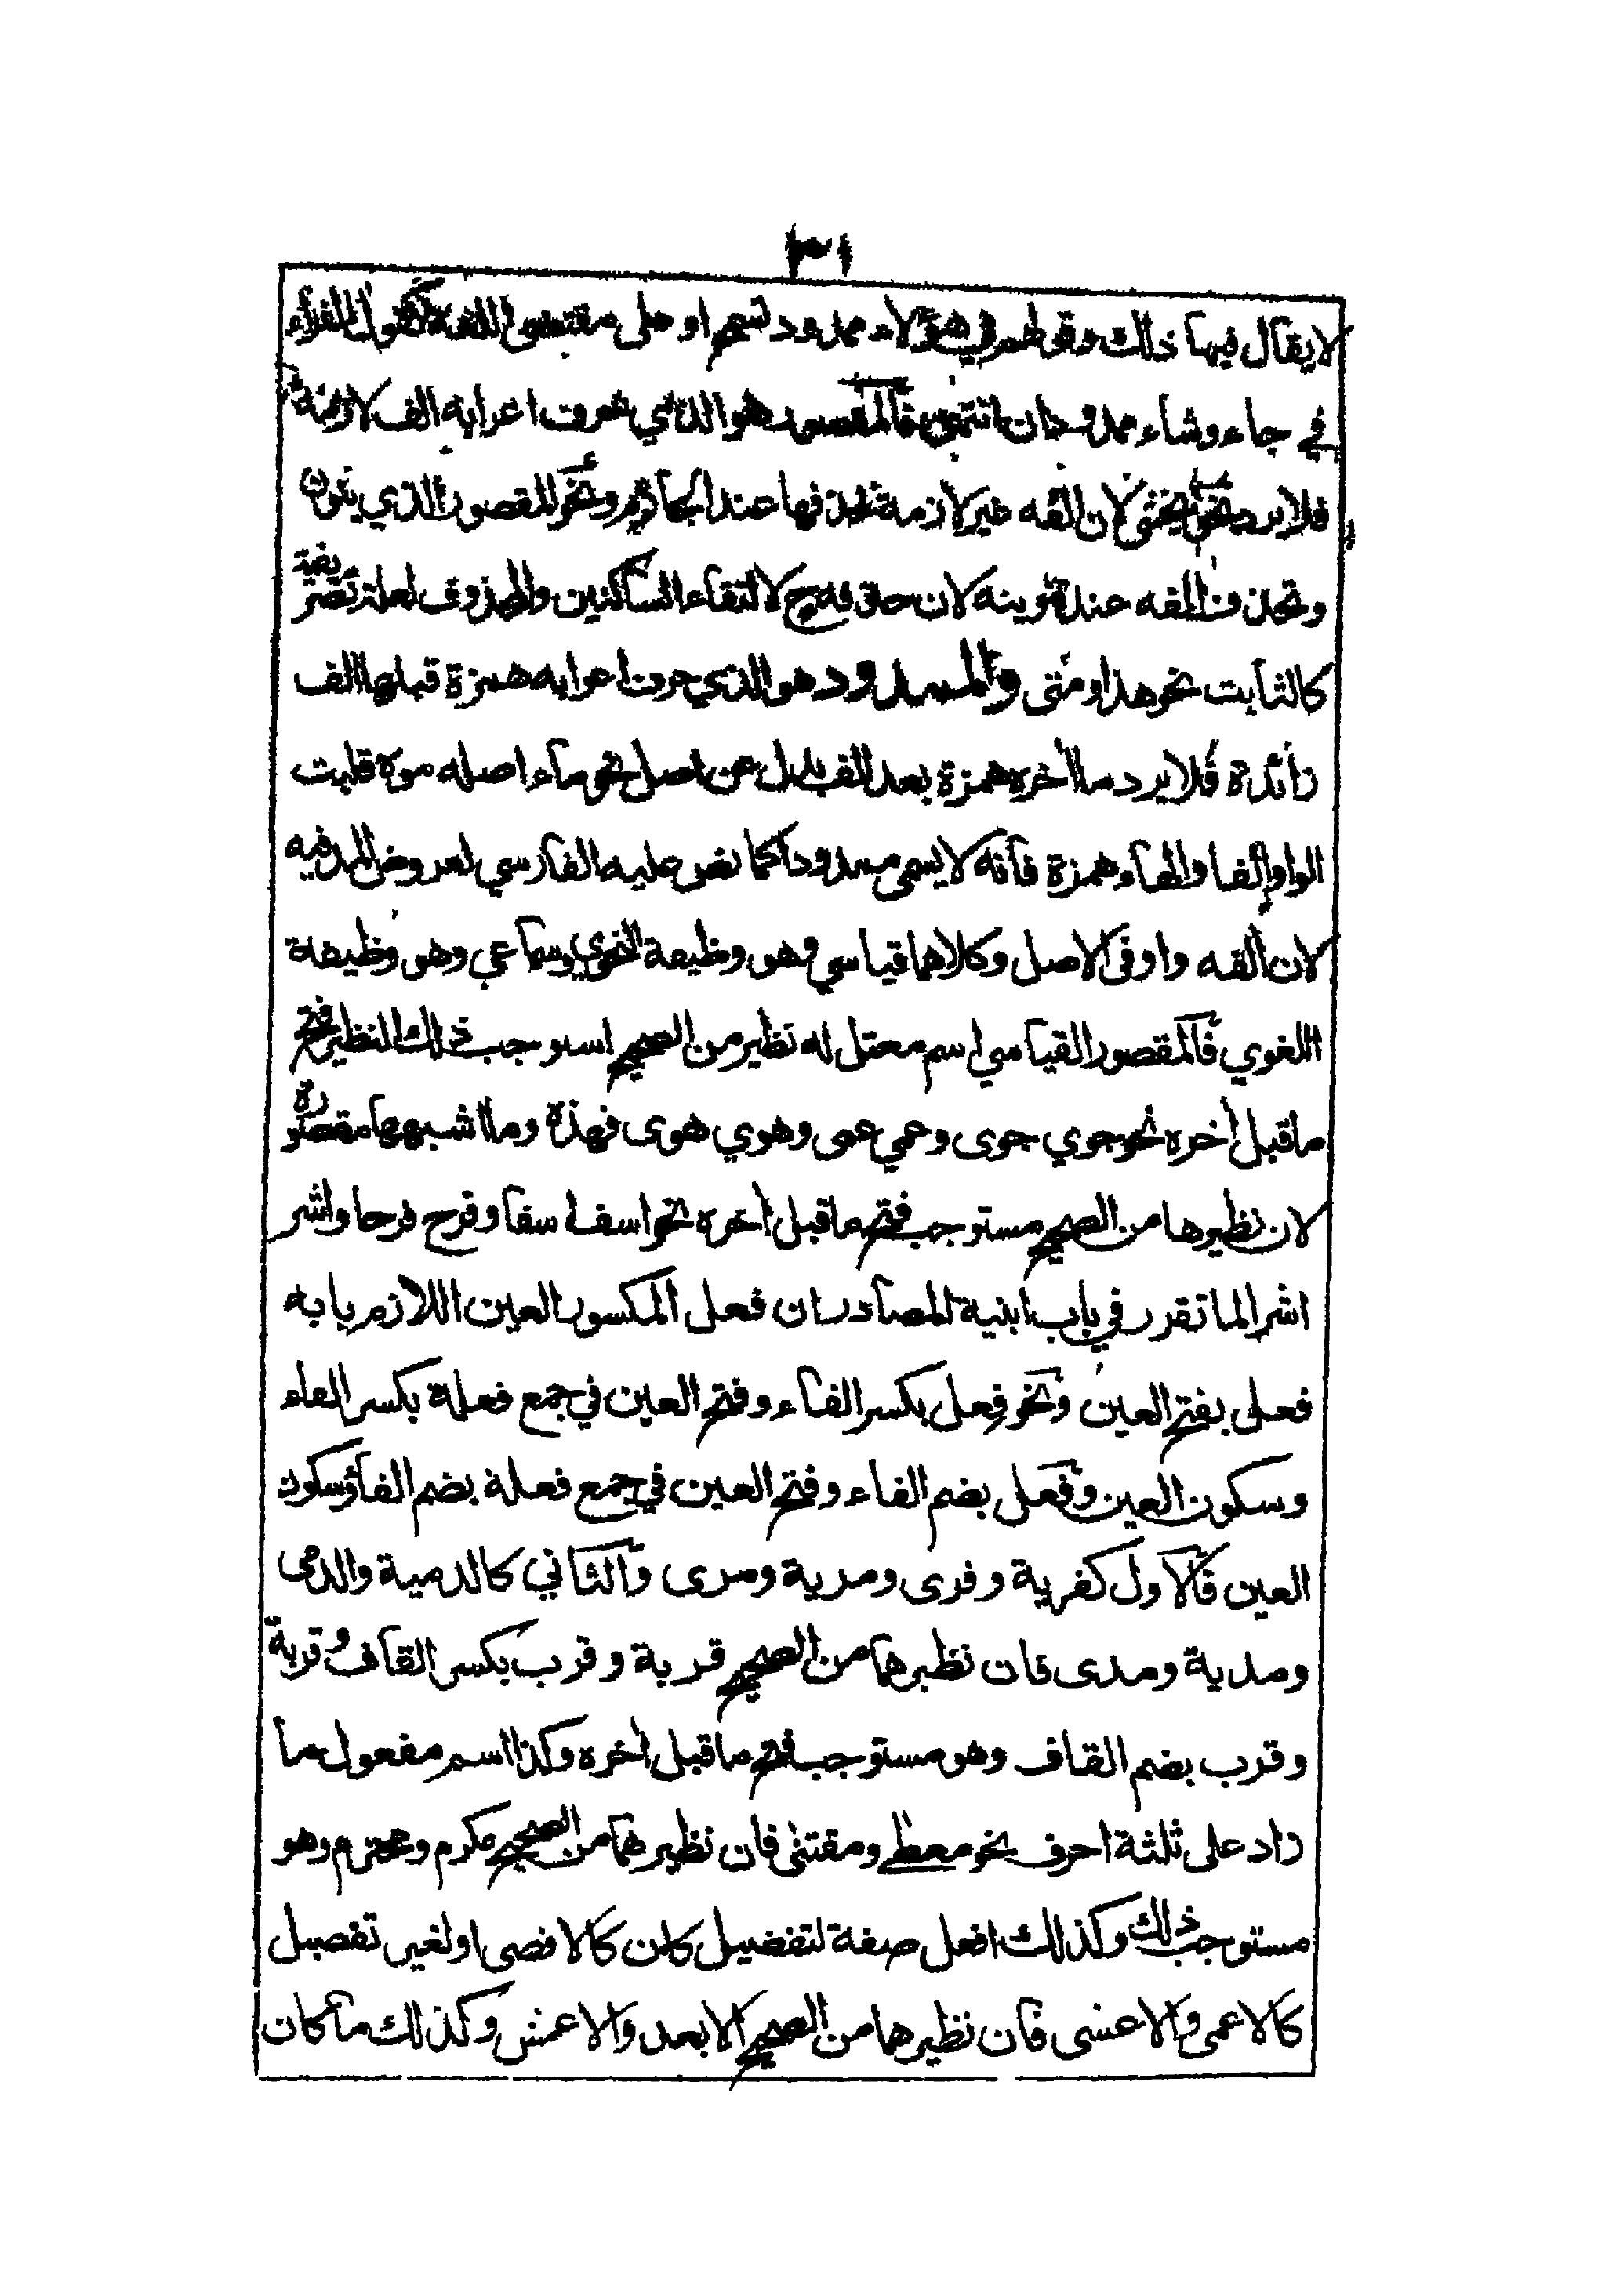 ١٣١
لا يقال فيها ذلك وقولهم في هؤلاء ممدود تسمح او على مقتضى اللغة كقول القراء
في جاء وشاء ممدودان انتهى فالمقصور هو الذي حرف اعرابه الف لازمة
فلا يرد نحو يخشى لان الفه غير لازمة تحذفها عند الجازم ونحو المقصور الذي ينون
وتحذف الفه عند تنوينه لان حذفه ح لالتقاء الساكنين والمحذوف لعلة تصريفية
كالثابت نحو هذا ومتى والممدود هو الذي حرف اعرابه همزة قبلها الف
زائدة فلا يرد ما اخره همزة بعد الف بدل عن اصل نحو ماء اصله موه قلبت
الواو الفا والهاء همزة فانه لا يسمى ممدودا كما نص عليه الفارسي لعروض المد فيه
لان الفه واو في الاصل وكلاهما قياسي وهو وظيفة النحوي وسماعي وهو وظيفة
اللغوي فالمقصور القياسي اسم معتل له نظير من الصحيح استوجب ذلك النظير فتح
ما قبل اخره نحو جوي جوى وعمي عمى وهوي هوى فهذه وما اشبهها مقصورة
لان نظيرها من الصحيح مستوجب فتح ما قبل اخره نحو اسف اسفا وفرح فرحا واشر
اشرا لما تقرر في باب ابنية المصادر ان فعل المكسور العين اللازم بابه
فعلى بفتح العين ونحو فِعل بكسر الفاء وفتح العين في جمع فعلة بكسر الفاء
وسكون العين وفعل بضم الفاء وفتح العين في جمع فعلة بضم الفاء وسكون
العين فالاول كفرية وفرى ومرية ومرى والثاني كالدمية والدمى
ومدية ومدى فان نظيرهما من الصحيح قربة وقرب بكسر القاف وقربة
وقرب بضم القاف وهو مستوجب فتح ما قبل اخره وكذا اسم مفعول ما
زاد على ثلثة احرف نحو معطى ومقتنى فان نظيرهما من الصحيح مكرم ومحترم وهو
مستوجب ذلك وكذلك افعل صفة لتفضيل كان كالاقصى او لغير تفضيل
كالاعمى والاعشى فان نظيرهما من الصحيح الابعد والاعمش وكذلك ما كان